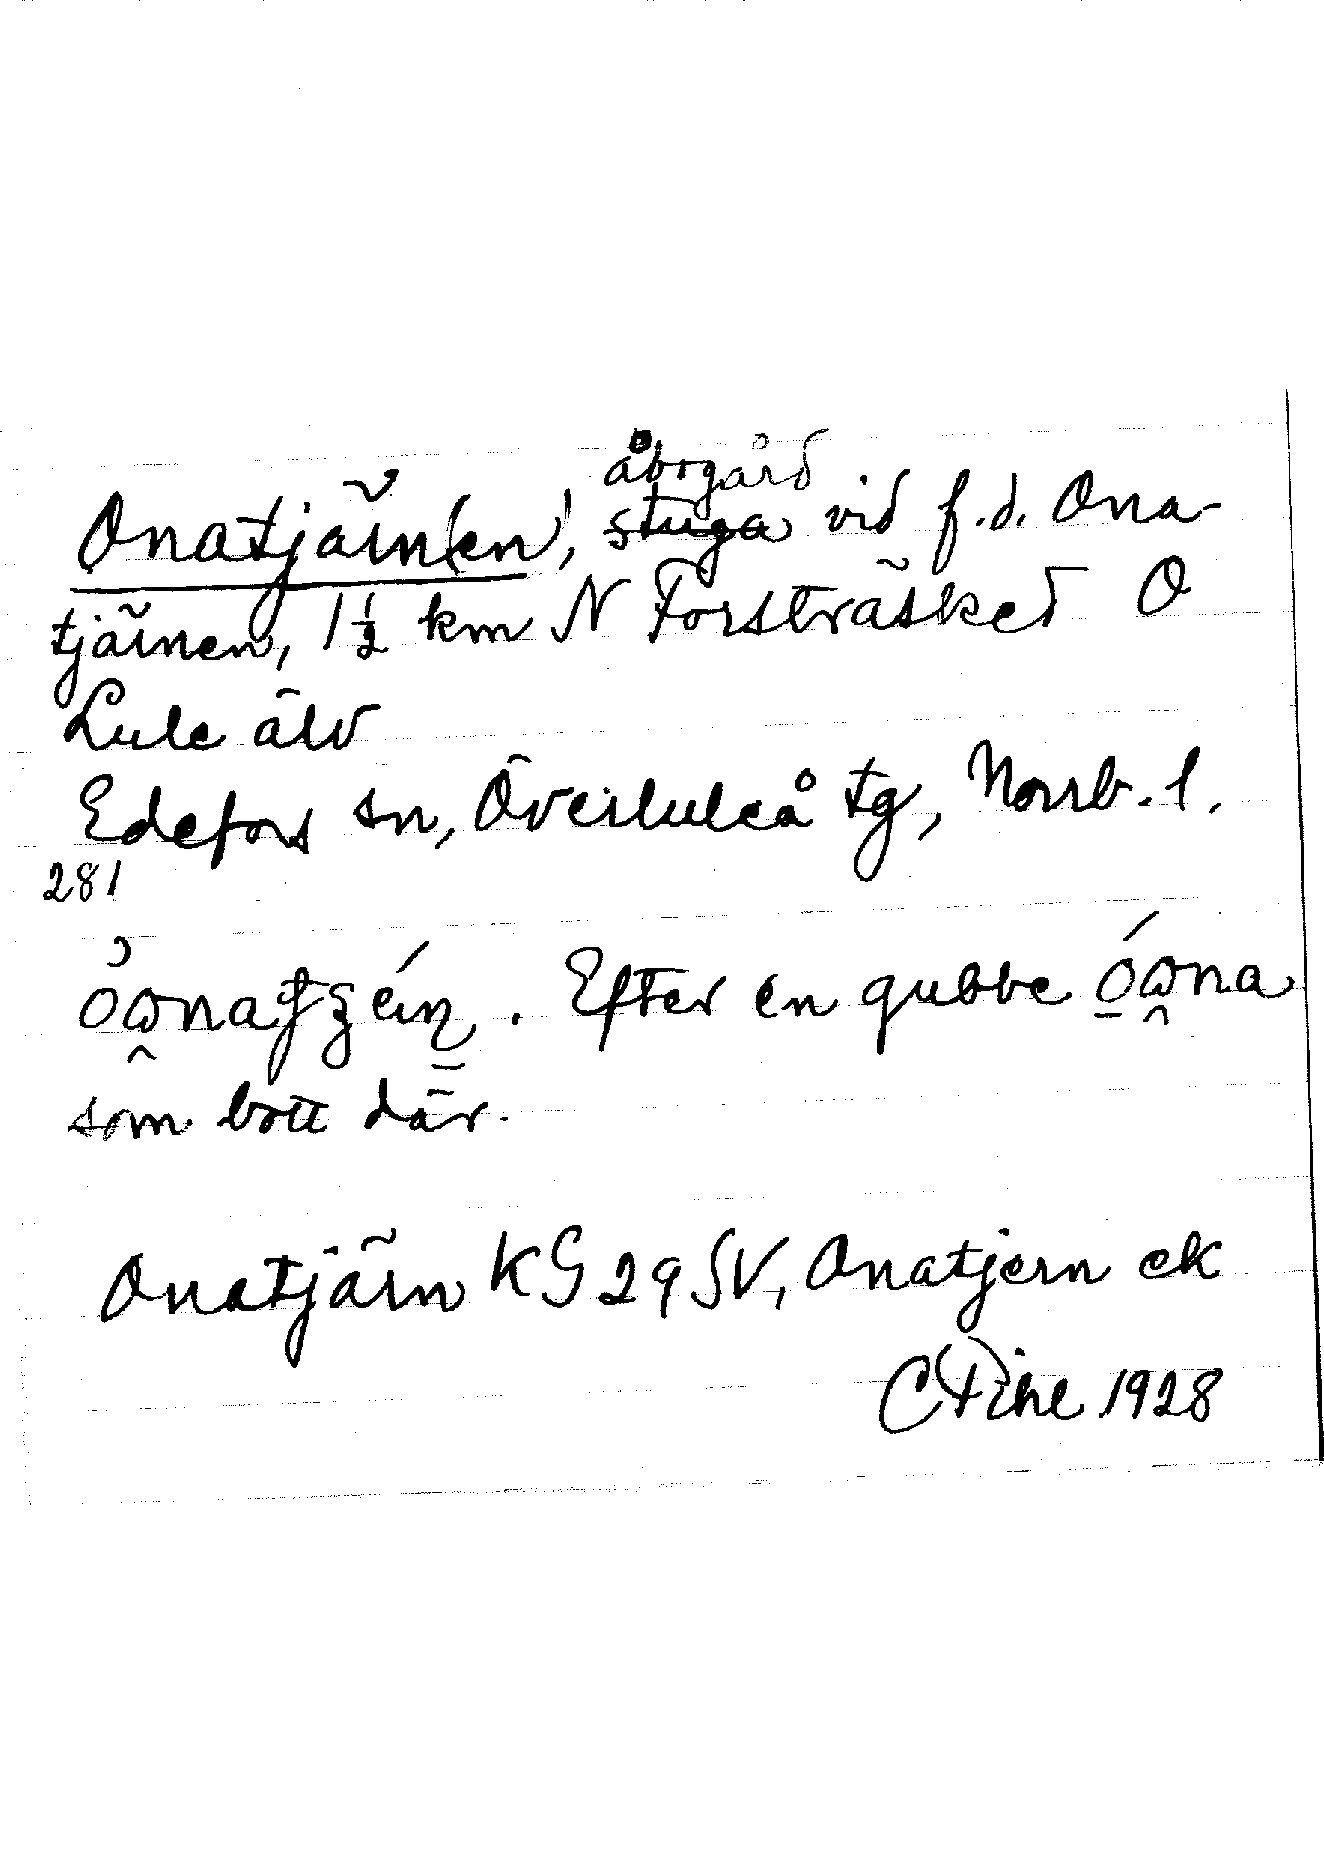 Onatjärn(en), åbogård vid f.d. Ona-
tjärnen, 1½ km N Forsträsket O
Lule älv
Edefors sn, Överluleå tg, Norrb. l.
281
. Efter en gubbe
som bott där.
Onatjärn KG 29 SV, Onatjern ek
C Pihl 1928